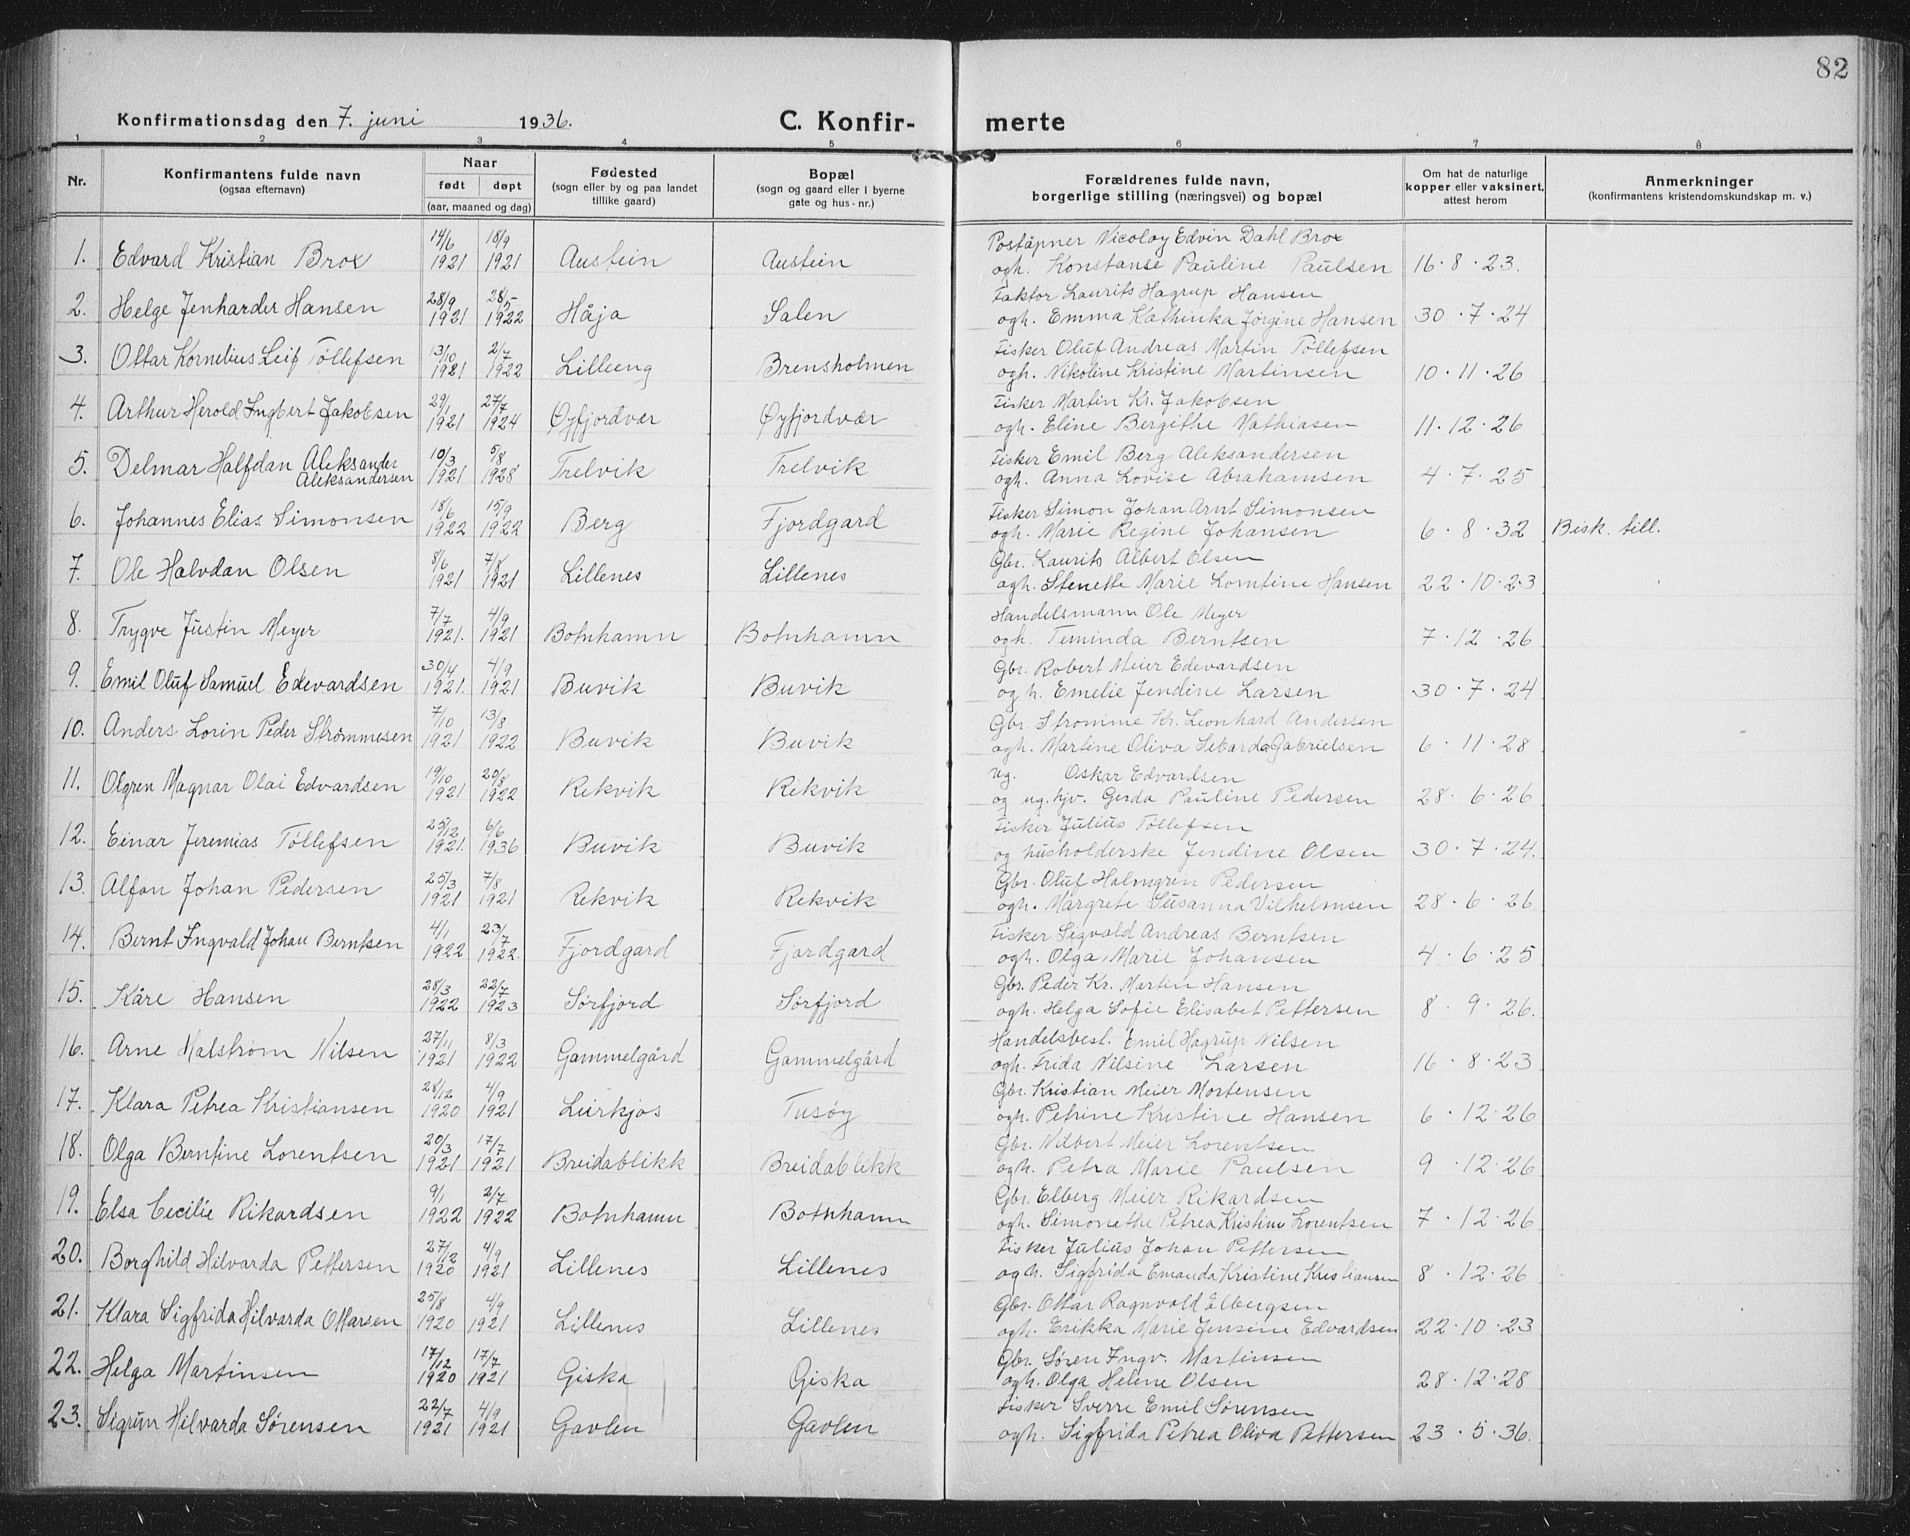 82
Konfirmationsdag den 7. juni 1936.
C. Konfirmerte
1 2 3 4 5 6 7 8
Nr.
Konfirmantens fulde navn (ogsaa efternavn)
Naar født døpt (aar, maaned og dag)
Fødested (sogn eller by og paa landet tillike gaard)
Bopæl (sogn og gaard eller i byerne gate og hus-nr.)
Forældrenes fulde navn, borgerlige stilling (næringsvei) og bopæl
Om hat de naturlige kopper eller vaksinert, attest herom
Anmerkninger (konfirmantens kristendomskundskap m. v.)
1. Edvard Kristian Brox 14/6 1921 18/9 1921 Austein Austein Poståpner Nicolay Edvin Dahl Brox
ogh. Konstanse Pauline Paulsen 16·8·23.
2. Helge Jenharder Hansen 28/9 1921 28/5 1922 Håja Salen Faktor Laurits Hagrup Hansen
ogh. Emma Kathinka Jørgine Hansen 30·7·24
3. Ottar Kornelius Leif Tøllefsen 13/10 1921 2/7 1922 Lilleeng Brensholmen Fisker Oluf Andreas Martin Tøllefsen
ogh. Nikoline Kristine Martinsen 10·11·26
4. Arthur Herold Ingbert Jakobsen 29/1 1921 27/7 1924 Øyfjordvær Øyfjordvær Fisker Martin Kr. Jakobsen
ogh. Eline Bergithe Mathiasen 11·12·26
5. Delmar Halfdan Aleksander Aleksandersen 10/3 1921 5/8 1928 Trelvik Trelvik Fisker Emil Berg Aleksandersen
ogh. Anna Lovise Abrahamsen 4·7·25
6. Johannes Elias Simonsen 18/6 1922 15/9 1922 Berg Fjordgard Fisker Simon Johan Arnt Simonsen
ogh. Marie Regine Johansen 6·8·32 Bisk. till.
7. Ole Halvdan Olsen 8/6 1921 7/8 1921 Lillenes Lillenes Gbr. Laurits Albert Olsen
ogh. Stenette Marie Lorntine Hansen 22·10·23
8. Trygve Justin Meyer 7/7 1921. 4/9 1921 Botnhamn Botnhamn Handelsmann Ole Meyer
ogh. Teminda Berntsen 7·12·26
9. Emil Oluf Samuel Edevardsen 30/4 1921. 4/9 1921 Buvik Buvik Gbr. Robert Meier Edevardsen
ogh. Emelie Jendine Larsen 30·7·24
10. Anders Lorin Peder Strømmesen 7/10 1921 13/8 1922 Buvik Buvik Gbr. Strømme Kr. Leonhard Andersen
ogh. Martine Oliva Sebarda Gabrielsen 6·11·28
11. Olgren Magnar Olai Edvardsen 19/10 1921 20/8 1922 Rekvik Rekvik Ug. Oskar Edvardsen
og ug. hjv. Gerda Pauline Pedersen 28·6·26
12. Einar Jeremias Tøllefsen 25/12 1921. 6/6 1936 Buvik Buvik Fisker Julius Tøllefsen
og husholderske Jendine Olsen 30·7·24.
13. Alfon Johan Pedersen 25/3 1921 7/8 1921 Rekvik Rekvik Gbr. Oluf Holmgren Pedersen
ogh. Margrete Susanna Vilhelmsen 28·6·26.
14. Bernt Ingvald Johan Berntsen 4/1 1922 23/7 1922. Fjordgard Fjordgard Fisker Sigvald Andreas Berntsen
ogh. Olga Marie Johansen 4·6·25
15. Kåre Hansen 28/3 1922 22/7 1923 Sørfjord Sørfjord Gbr. Peder Kr. Martin Hansen
ogh. Helga Sofie Elisabet Pettersen 8·9·26.
16. Arne Malstrøm Nilsen 27/11 1921 8/3 1922 Gammelgård Gammelgård Handelsbest. Emil Hagrup Nilsen
ogh. Frida Nilsine Larsen 16·8·23
17. Klara Petrea Kristiansen 28/12 1920 4/9 1921 Leirkjos Tusøy Gbr. Kristian Meier Mortensen
ogh. Petrine Kristine Hansen 6·12·26
18. Olga Berntine Lorentsen 20/3 1921 17/7 1921 Breidablikk Breidablikk Gbr. Vilbert Meier Lorentsen
ogh. Petra Marie Paulsen 9·12·26
19. Elsa Cecilie Rikardsen 9/1 1922 2/7 1922 Botnhamn Botnhamn Gbr. Elberg Meier Rikardsen
ogh. Simonethe Petrea Kristine Lorentsen 7·12·26
20. Borghild Hilvarda Pettersen 27/12 1920 4/9 1921 Lillenes Lillenes Fisker Julius Johan Pettersen
ogh. Sigfrida Emanda Kristine Kristiansen 8·12·26
21. Klara Sigfrida Hilvarda Ottarsen 25/8 1920 4/9 1921 Lillenes Lillenes Gbr. Ottar Ragnvald Elbergsen
ogh. Erikka Marie Jensine Edvardsen 22·10·23
22. Helga Martinsen 17/12 1920 17/7 1921 Giska Giska Gbr. Søren Ingv. Martinsen
ogh. Olga Helene Olsen 28·12·28
23. Sigrun Hilvarda Sørensen 22/7 1921 4/9 1921 Gavlen Gavlen Fisker Sverre Emil Sørensen
ogh. Sigfrida Petrea Oliva Pettersen 23·5·36.